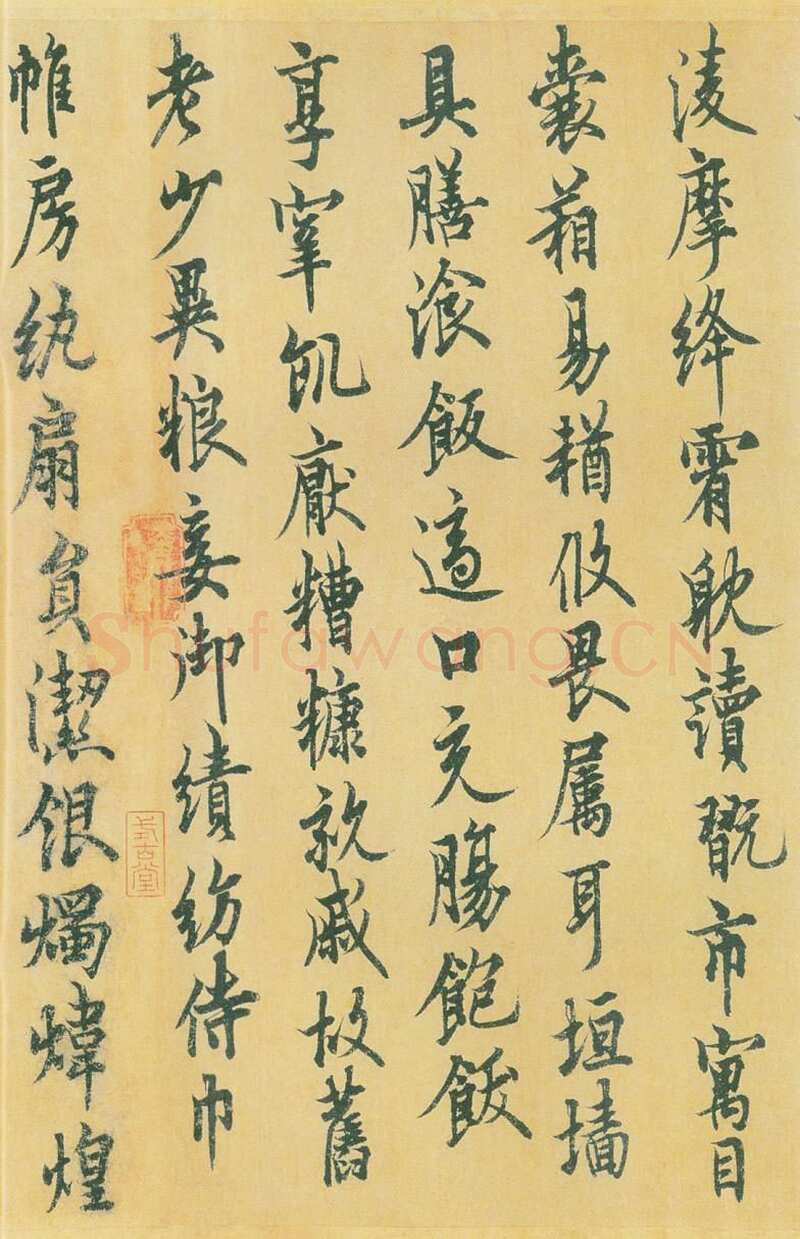 淩摩絳霄躭讀翫市寓目
囊葙易輶攸畏属耳垣墙
具膳湌飯適口充腸飽飫
享宰飢猒糟糠親戚故舊
老少異粮妾御績紡侍巾
帷房紈扇員潔銀燭煒煌
式古堂
Shufawang.CN